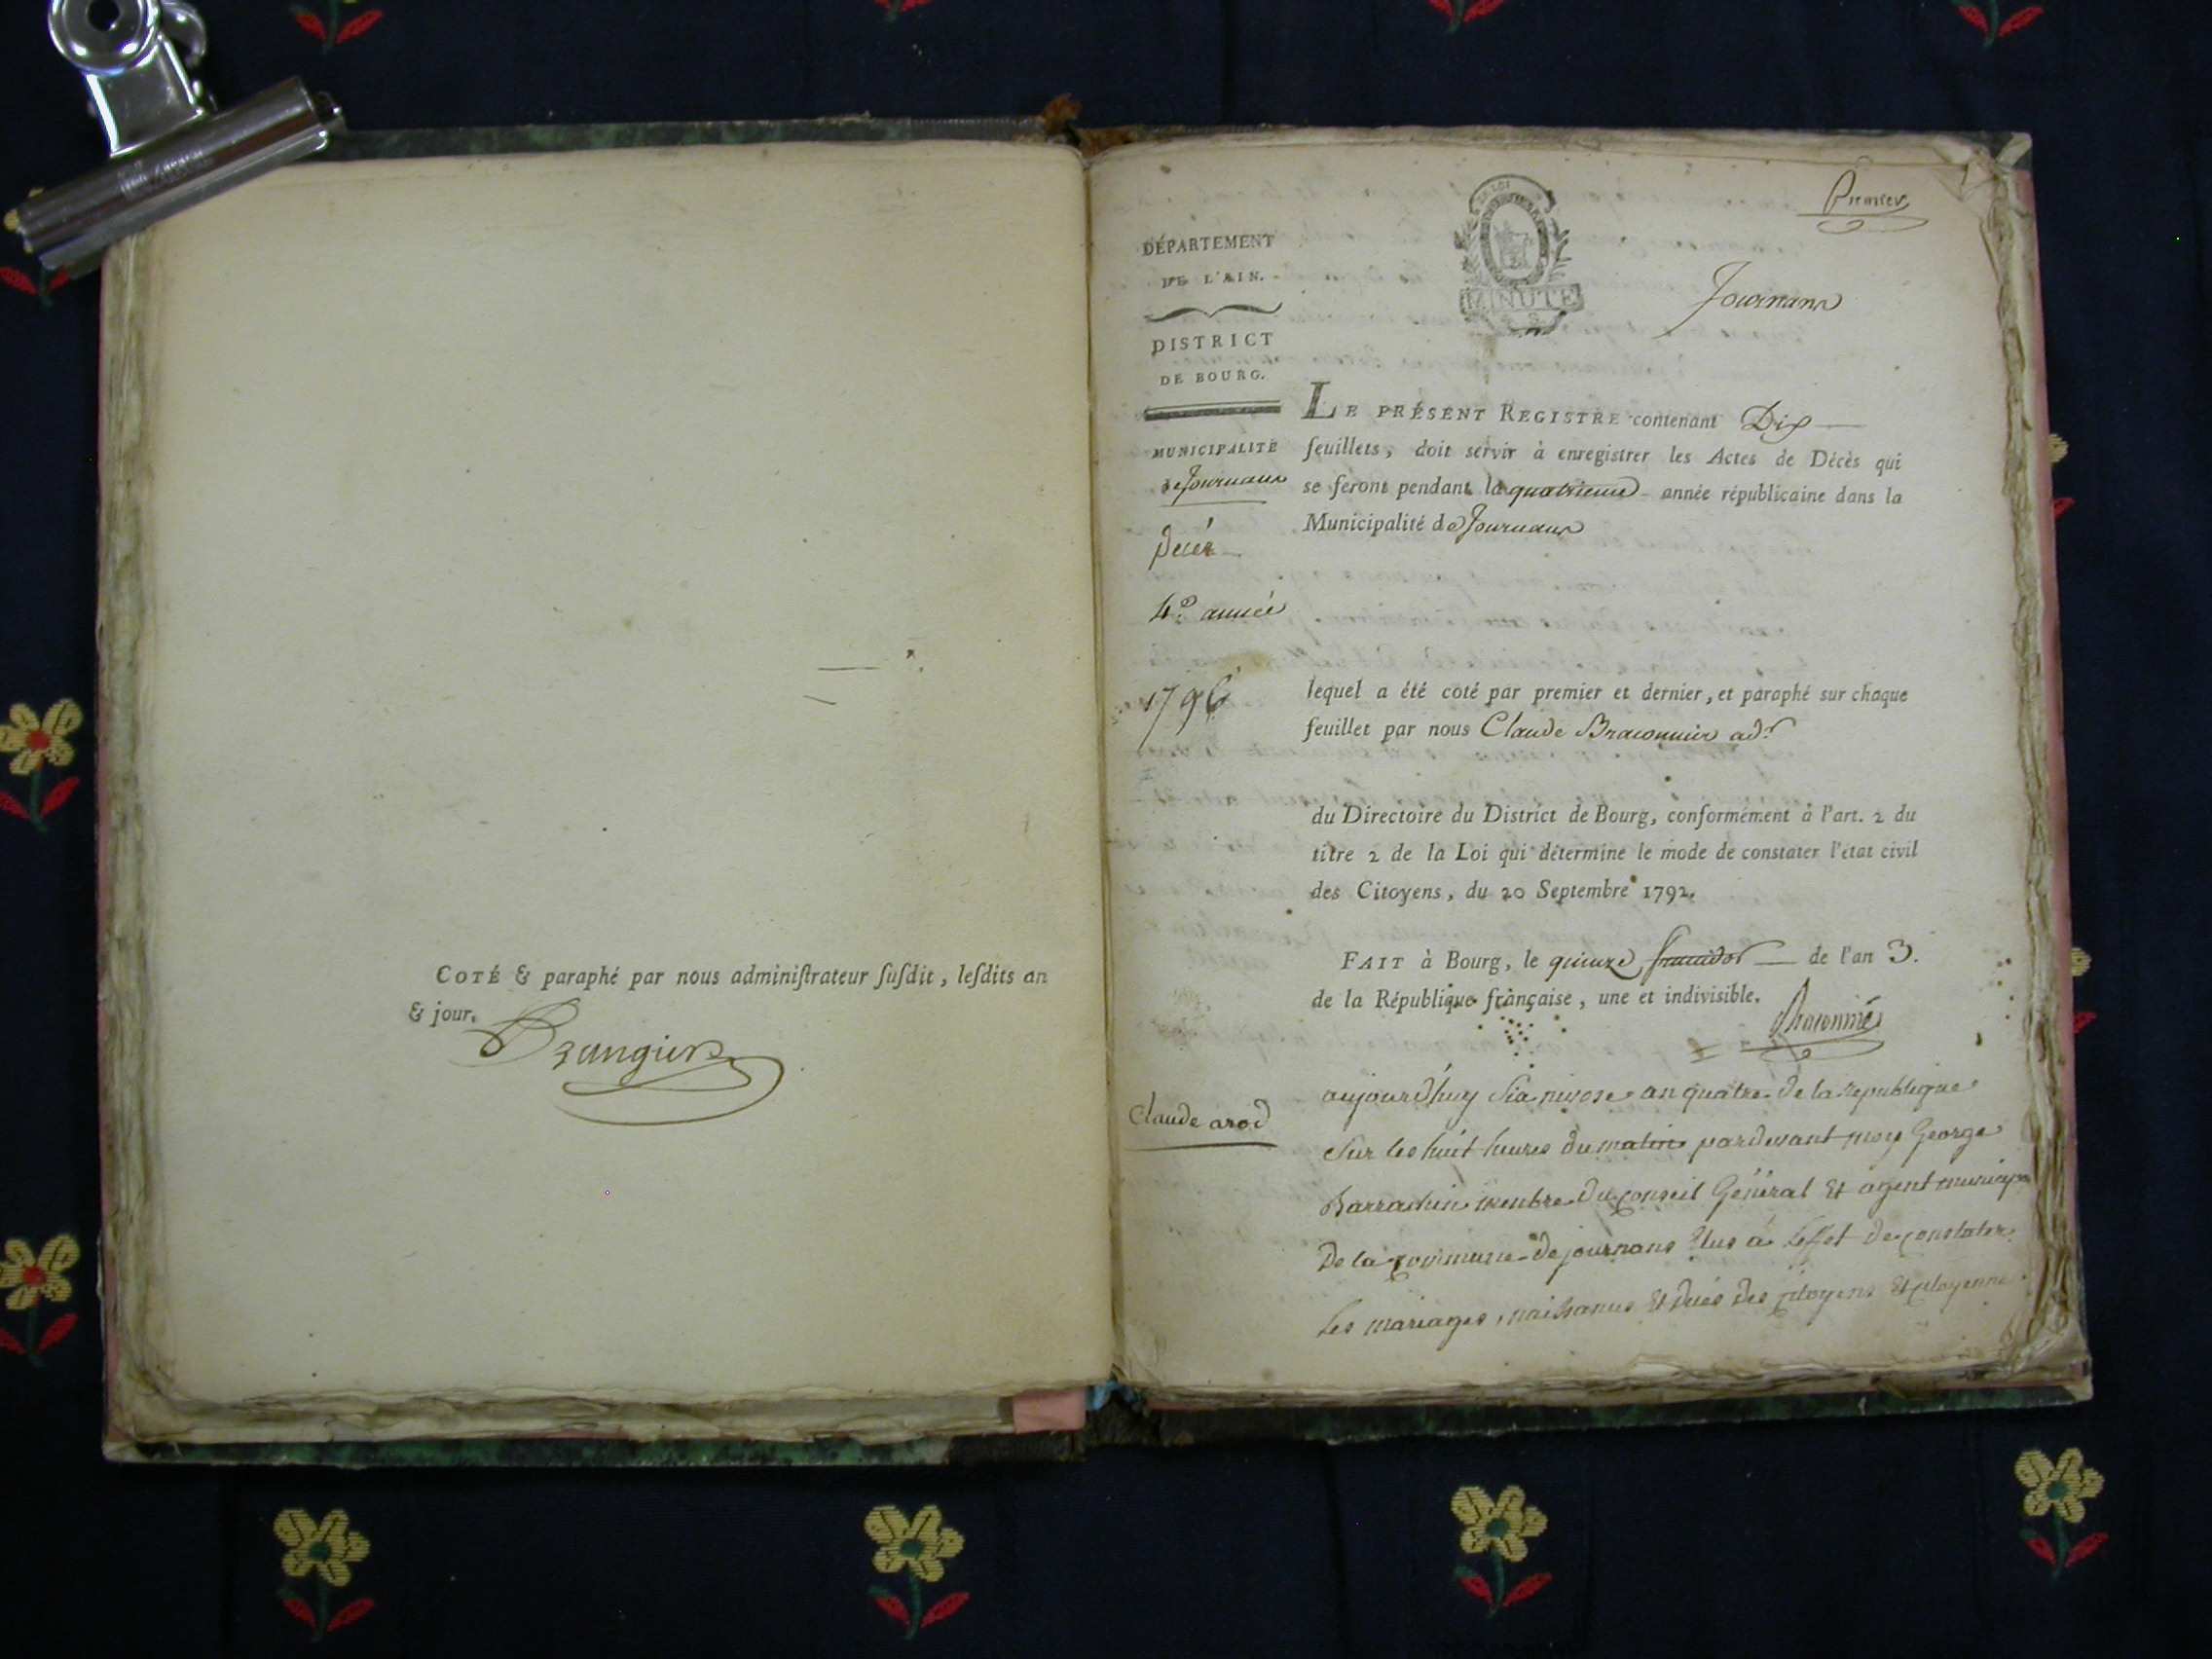 COTÉ & paraphé par nous adminiſtrateur ſuſdit, leſdits an
& jour.
Brangier
Premier
LA LOI
MINUTE
Journans
DÉPARTEMENT
DE L'AIN.
DISTRICT
DE BOURG.
MUNICIPALITÉ
de Journans
Décès
4e année
1796
LE PRÉSENT REGISTRE contenant Dix
feuillets, doit servir à enregistrer les Actes de Décès qui
se feront pendant la quatrieme année républicaine dans la
Municipalité de Journans
lequel a été coté par premier et dernier, et paraphé sur chaque
feuillet par nous Claude Braconnier adr
du Directoire du District de Bourg, conformément à l'art. 2 du
titre 2 de la Loi qui détermine le mode de constater l'état civil
des Citoyens, du 20 Septembre 1792.
FAIT à Bourg, le quinze fructidor de l'an 3.
de la République française, une et indivisible.
Braconnié
Claude arod
aujourd'huy Six nivose an quatre de la republique
Sur les huit heures du matin pardevant moy George
Barrachin menbre du conseil Général Et agent municipa
De la commune de journans Elus a Leffet de constater
Les mariages, naissances Et décés des citoyens Et citoyenne